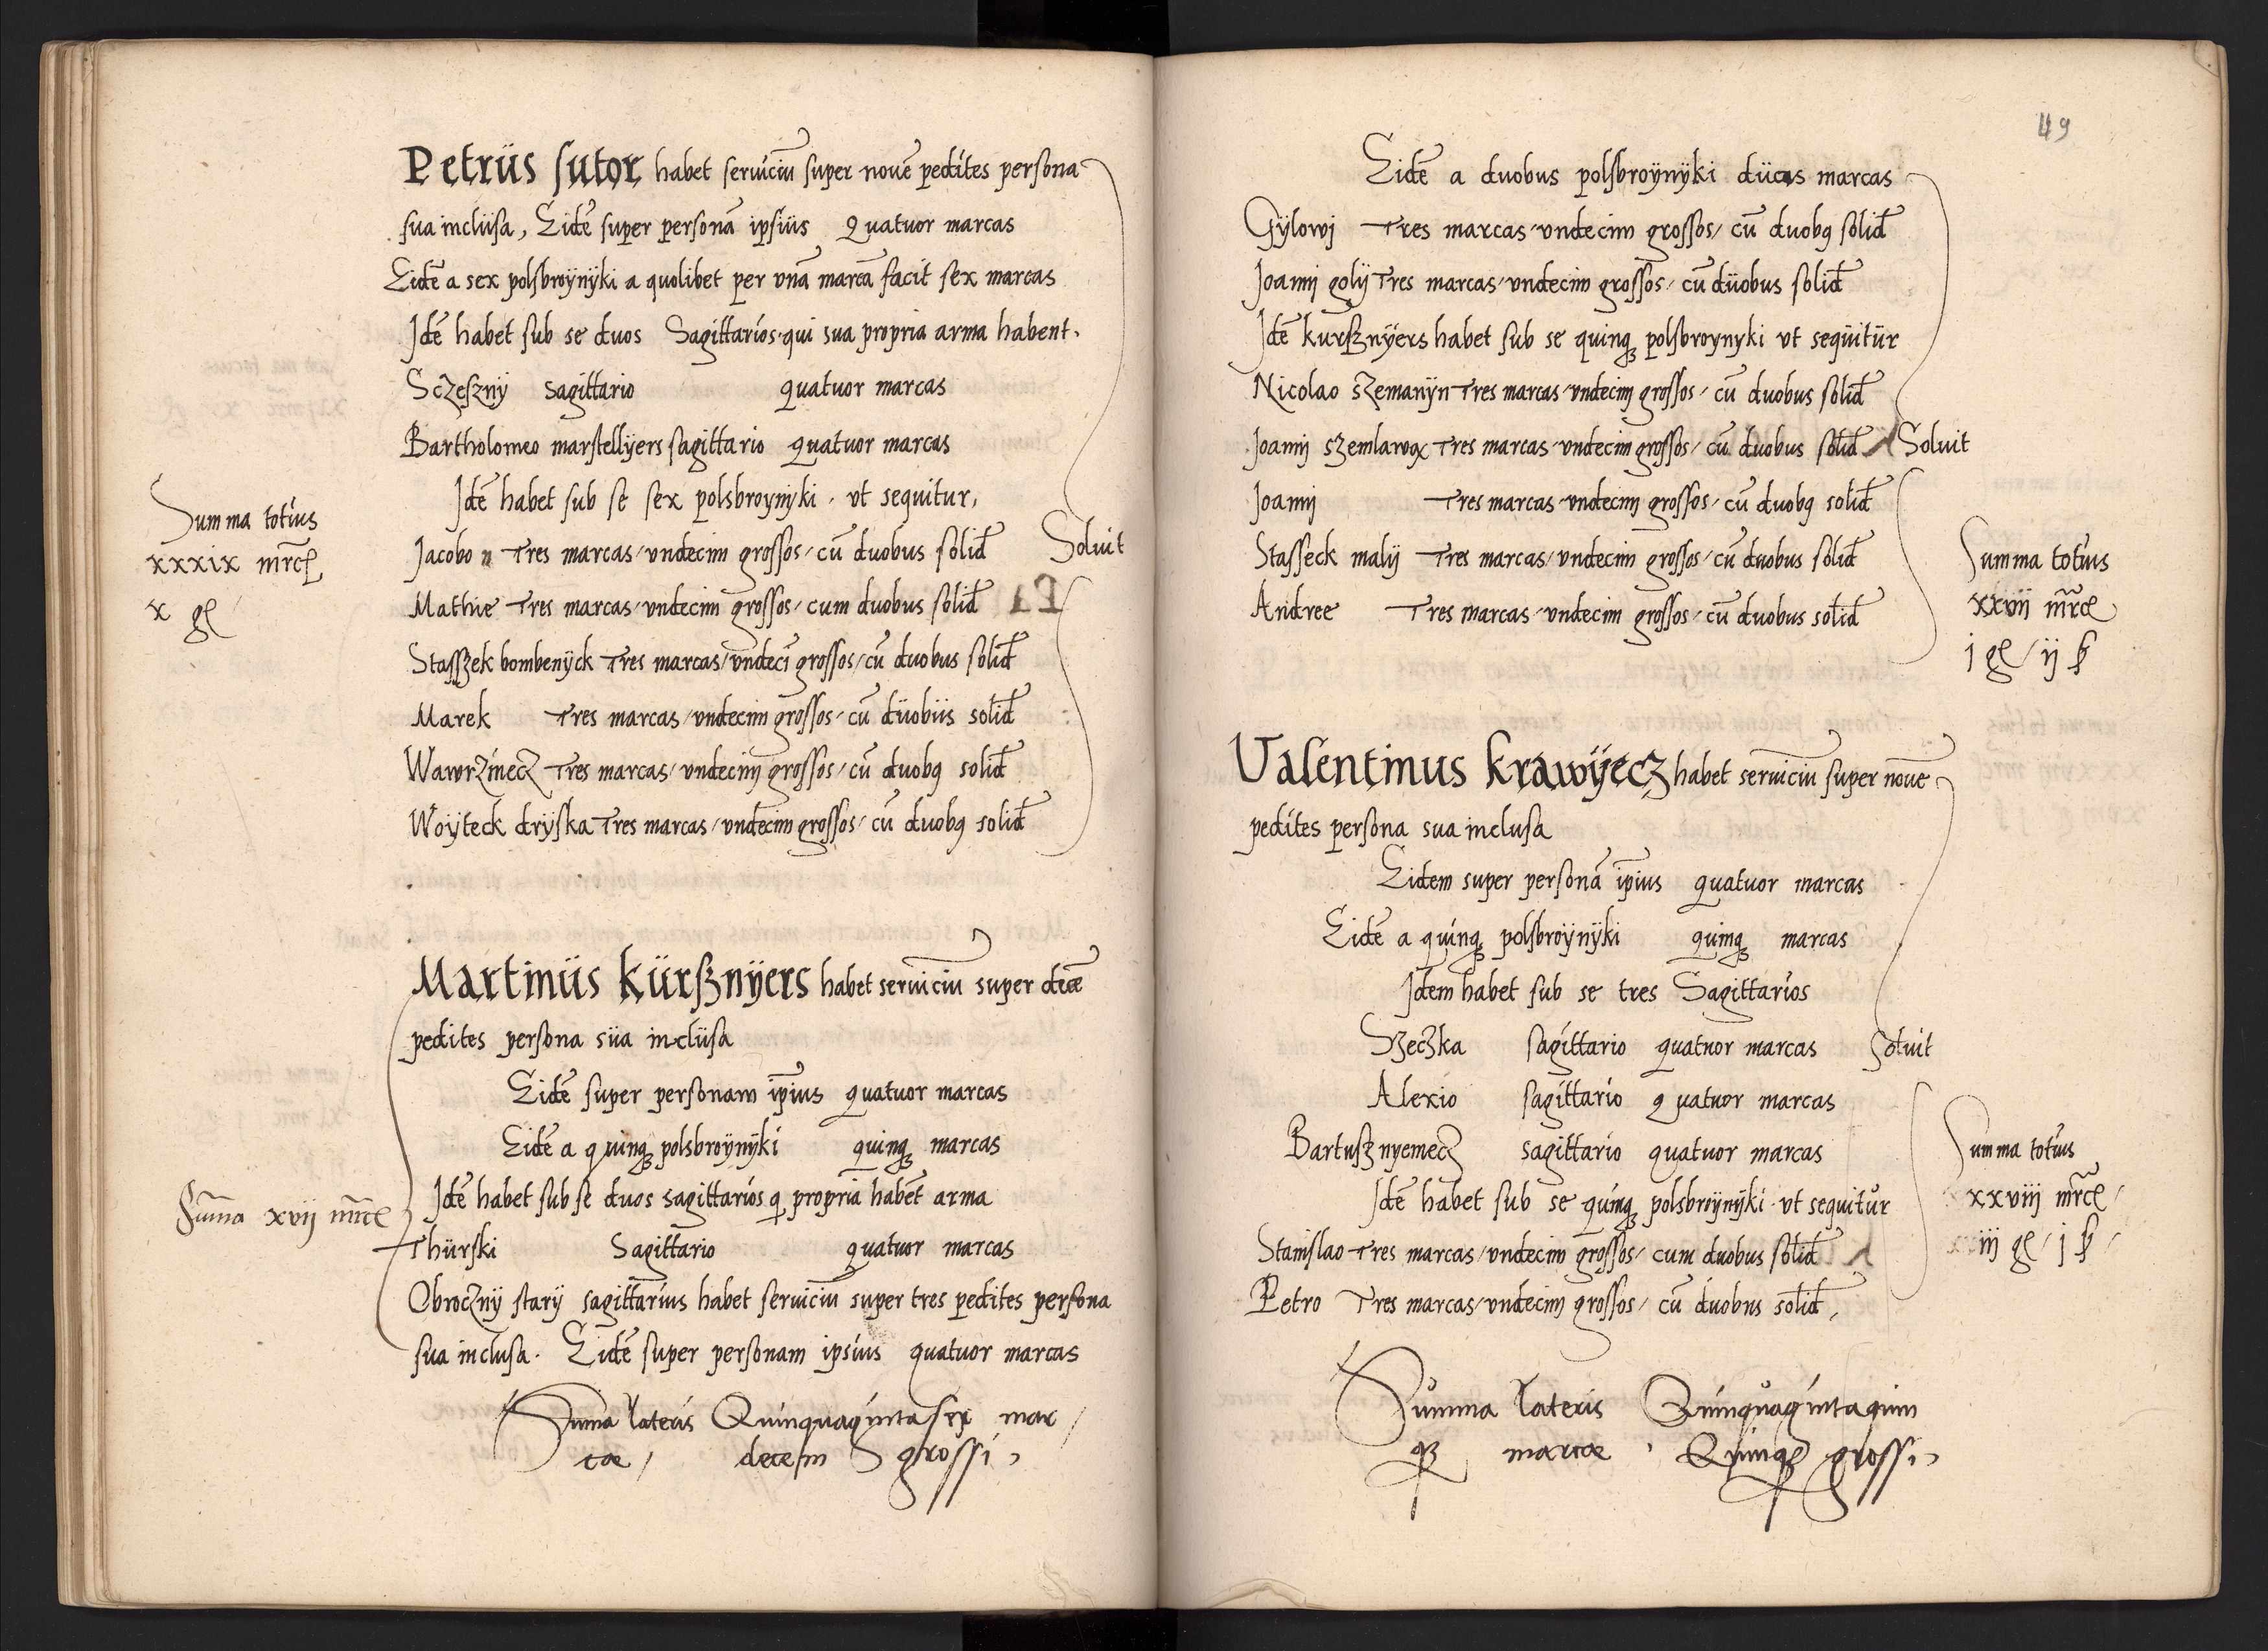 Petrüs sutor habet seruiciū super nouē pedites persona
sua inclüsa, Eidē super personā ipsiüs Quatuor marcas
Eidē a sex polsbroÿnÿki a quolibet per vnā marcā facit sex marcas
Idē habet sub se duos Sagittarios qui sua propria arma habent.
Sczesznÿ sagittario quatuor marcas
Bartholomeo marstellÿers sagittario quatuor marcas
Idē habet sub se sex polsbroynÿki. vt sequitur,
Jacobo Tres marcas/vndecim grossos/cū duobus solid
Soluit
Mathie Tres marcas/vndecim grossos/cum duobus solid
Stasszek bombenÿck Tres marcas/vndecī grossos/cū duobus solid
Marek Tres marcas/vndecim grossos/cū düobüs solid
Wawrzinecz Tres marcas/vndecim grossos/cū duobꝗ solid
Woÿteck drÿska Tres marcas/vndecim grossos/cū duobꝗ solid
Summa totius
xxxix mrcę
x gɼ
Martinüs kürsznÿers habet seruiciū super decē
pedites persona süa inclüsa
Eidē super personam ip̄ius quatuor marcas
Eidē a quinqꝫ polsbroÿnÿki quinqꝫ marcas
Idē habet sub se duos sagittarios q propria habēt arma
Thürski Sagittario quatuor marcas
Obrocznÿ starÿ sagittarius habet seruiciū super tres pedites persona
sua inclusa. Eidē super personam ipsius quatuor marcas
Sum̄a xvij mrce
Sum̄a lateris Quinquaginta sex mar
cae, decem grossi,
49
Eidē a duobus polsbroÿnÿki düas marcas
Gÿlowj Tres marcas/vndecim grossos/cū duobꝗ solid
Joanij golÿ Tres marcas/vndecim grossos/cū düobus solid
Idē kursznÿers habet sub se quinqꝫ polsbroynyki vt seqüitür
Nicolao szemanÿn Tres marcas/vndecim grossos/cū duobus solid
Joanij szemlarox Tres marcas/vndecim grossos/cū duobus solid
Soluit
Joanij Tres marcas/vndecim grossos/cū duobꝗ solid
Stasseck malÿ Tres marcas/vndecim grossos/cū duobus solid
Andree Tres marcas/vndecim grossos/cū duobus solid
Summa totius
xxvij mrce
j gɼ/ij ꝭ
Valentinus krawÿecz habet seruiciū super nouē
pedites persona sua inclusa
Eidem super personā ip̄ius quatuor marcas
Eidē a quinqꝫ polsbroÿnÿki quinqꝫ marcas
Idem habet sub se tres Sagittarios
Szeczka sagittario quatuor marcas
Soluit
Alexio sagittario quatuor marcas
Bartusz nyemecz sagittario quatuor marcas
Idē habet sub se quinqꝫ polsbroÿnÿki. vt sequitur
Stanislao Tres marcas/vndecim grossos/cum duobus solid
Petro Tres marcas/vndecim grossos/cū duobus solid,
Summa totius
xxviij mrce/
iiij gɼ/j ꝭ/
Summa lateris Quinquagintaquin
qꝫ marcae, Quinqꝫ grossi,